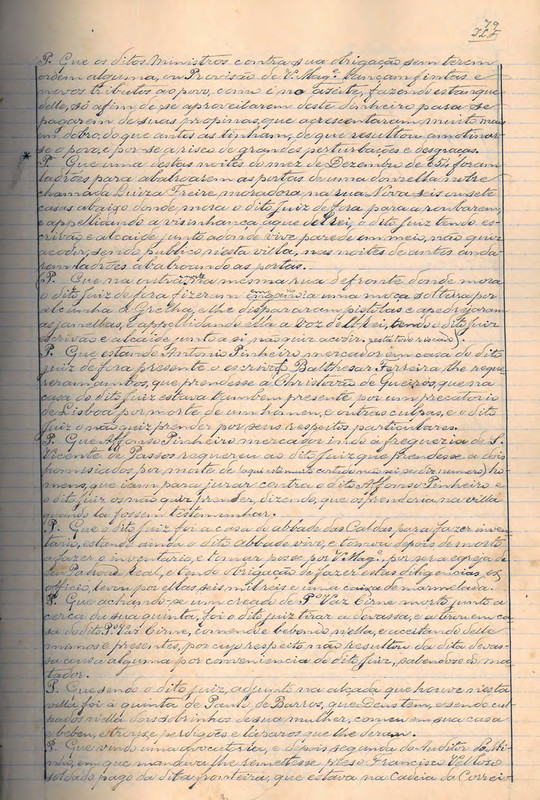 79
P. Que os ditos Ministros contra sua obrigação sem terem
ordem alguma, ou Provisão de V. Magᵉ. lançam fintas e
novos tributos ao povo, como é no Azeite, fazendo estanque
delle, só afim de se aproveitarem deste dinheiro para se
pagarem de suas propinas, que acrescentaram muito mais
em dobro do que antes as tinham, de que resultou amotinar-
se o povo, e por-se a risco de grandes perturbações e desgraças.
* P. Que uma destas noites do mez de Dezembro de 651 foram
ladrões para abalroarem as portas de uma donzella nobre
chamada Luiza Freire, moradora na rua Nova seis ou sete
casas abaixo donde mora o dito Juiz de fora para a roubarem,
e appellidando a visinhança aque d'el Rei, o dito Juiz tendo es-
crivão e alcaide junto adonde vive parede em meio, não quiz
acodir, sendo publico nesta villa, nas noites de antes anda-
rem ladrões abalroando as portas.
P. Que na outra noite na mesma rua defronte donde mora
o dito Juiz de fora fizeram a uma moça solteira por
alcunha a Grelha, e lhe dispararam pistolas e apedrejaram
as janellas, e appellidando ella a voz del Rei, tendo o dito Juiz
escrivão e alcaide junto a si, não quiz acodir. (está todo riscado).
P. Que estando Antonio Pinheiro mercador em casa do dito
Juiz de fora presente o escrivão Balthesar Ferreira lhe reque-
reram ambos, que prendesse a Christovão de Queirós, que na
casa do dito Juiz estava tambem presente por um precatorio
de Lisboa por morte de um homem, e outras culpas, e o dito
Juiz o não quiz prender por seus respeitos particulares.
P. Que Affonso Pinheiro mercador indo á freguezia de S.
Vicente de Passos requereu ao dito Juiz que prendesse a dois
homisiados, por morte de (aqui está muito cortado não sei se diz numero) ho-
mens, que iam para jurar contra o dito Affonso Pinheiro e
o dito Juiz os não quiz prender, dizendo, que os prenderia na villa
quando lá fossem testemunhar.
P. Que o dito Juiz foi a casa do abbade das Caldas para fazer inven-
tario, estando ainda o dito abbade vivo, e tornou depois de morto
a fazer o inventario, e tomar posse por V. Magᵉ. por ser a egreja de
seu Padroado Real, e tendo obrigação de fazer estas diligencias ex
officio, levou por ellas seis mil reis e uma caixa de marmelada.
P. Que achando-se um creado de Pº Vaz Cirne morto junto a
cerca da sua quinta, foi o dito Juiz tirar a devassa, e a tirou em ca-
sa do dito Pº Vaz Cirne, comendo e bebendo nella, e aceitando delle
mimos e presentes, por cujo respeito não resultou da dita devas-
sa cousa alguma por conveniencia do dito Juiz, sabendo-se do ma-
tador.
P. Que sendo o dito Juiz, adjunto na alçada que houve nesta
villa foi á quinta de Paulo de Barros, que Deus tem, e sendo cul-
pados nella dois sobrinhos de sua mulher, comeu em sua casa
e bebeu, e trouxe perdigões e laparos que lhe deram.
P. Que vindo uma avocatoria, e depois segunda do Auditor do Mi-
nho, em que mandava lhe remettesse preso Francisco Velloso
soldado pago da dita fronteira, que estava na Cadeia da Correi-